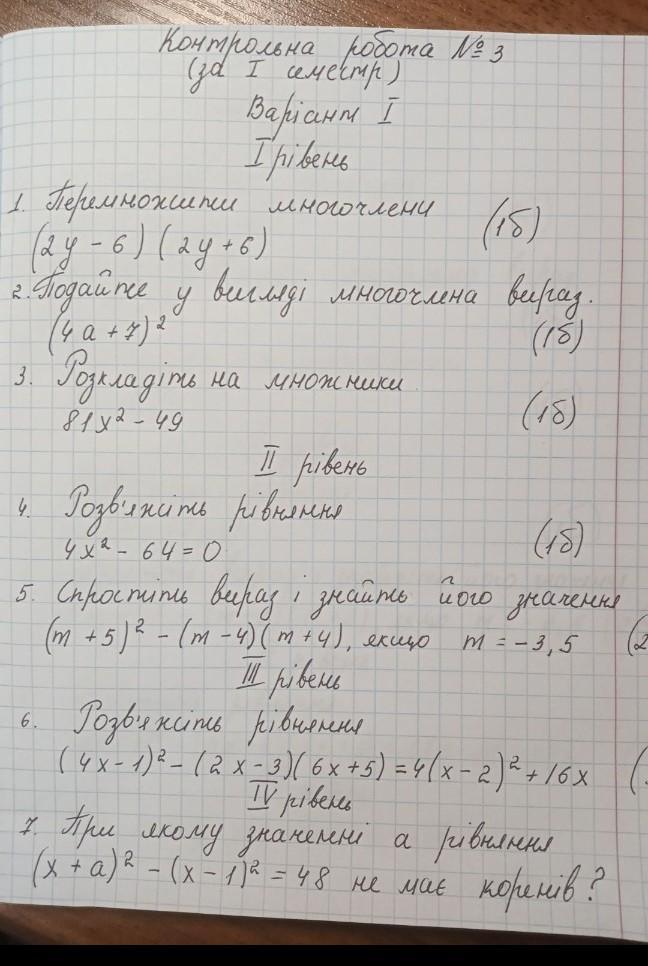 Контрольна робота № 3
(за I семестр)
Варіант I
I рівень
1. Перемножити многочлени
(2y - 6) (2y + 6) (1б)
2. Подайте у вигляді многочлена вираз.
(4a + 7)² (1б)
3. Розкладіть на множники
81x² - 49 (1б)
II рівень
4. Розв'яжіть рівняння
4x² - 64 = 0 (1б)
5. Спростіть вираз і знайть його значення
(m + 5)² - (m - 4)(m + 4), якщо m = -3,5 (2
III рівень
6. Розв'яжіть рівняння
(4x - 1)² - (2x - 3)(6x + 5) = 4(x - 2)² + 16x (
IV рівень
7. При якому значенні a рівняння
(x + a)² - (x - 1)² = 48 не має коренів?